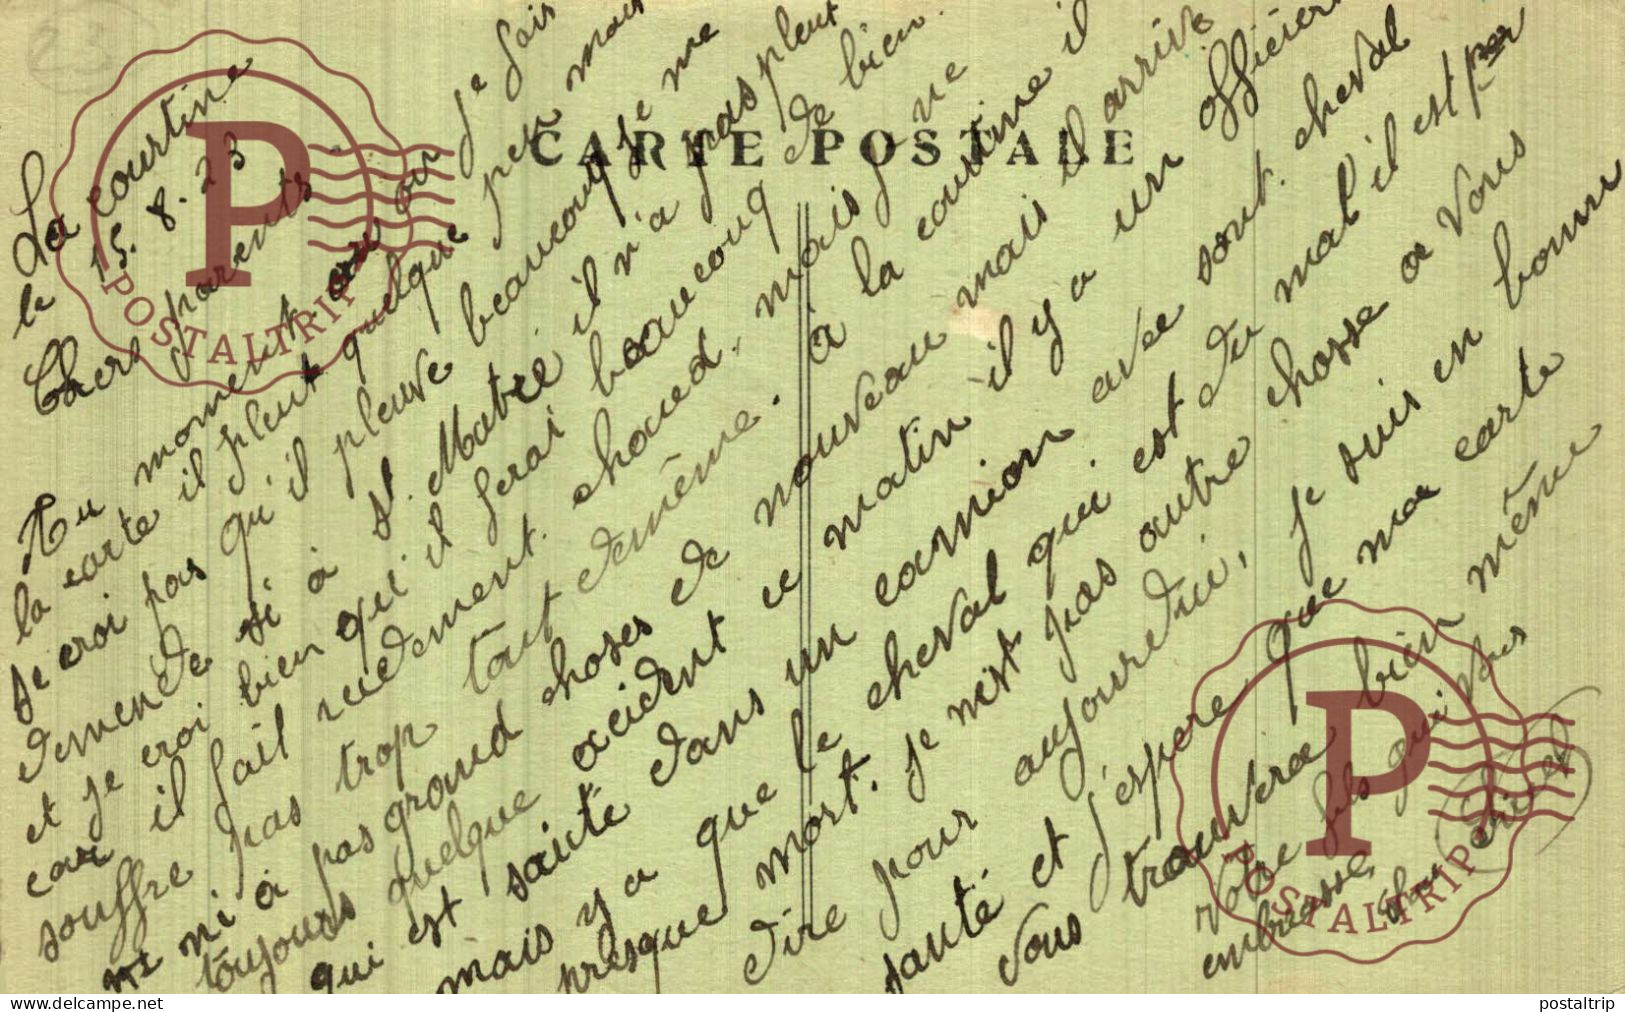 CARTE POSTALE
La courtine
le 15.8.23
Chers parents
Au moment ou je fais
la carte il pleut quelque peu mais
je croi pas qu'il pleuve beaucoup je me
demende si à St. Matré il n'a pas pleut
et je croi bien qu'il ferai beaucoup de bien.
car il fait rudement choued. mais je ne
souffre pas trop tout demême. à la courtine il
ni à pas grand choses de nouveau mais il arrive
toujours quelque accident ce matin il y a un officier
qui est sauté dans un camion avec sont cheval
mais y a que le cheval qui est du mal il est
presque mort. je n'est pas autre chosse a vous
dire pour aujouredui, je suis en bonne
santé et j'espere que ma carte
vous trouvera bien même
votre fils qui vous
embrasse
POSTALTRIP
P
POSTALTRIP
P
delcampe.net
postaltrip